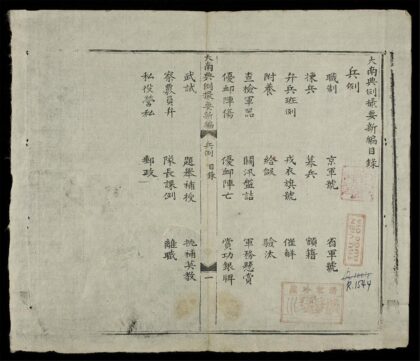 大南典例撮要新編目錄
兵例
職制 京軍號 省軍號
揀兵 募兵 額籍
弁兵班例 戎衣旗號 催解
附養 驗汰
查檢軍器 關汛盤詰 軍務懸賞
優卹陣傷 優卹陣亡 賞功銀牌
大南典例撮要新編 兵例 目錄 一
武試 題舉補授 挑補英教
察覈員弁 隊長課例 離職
私役營私 郵政
R.1544